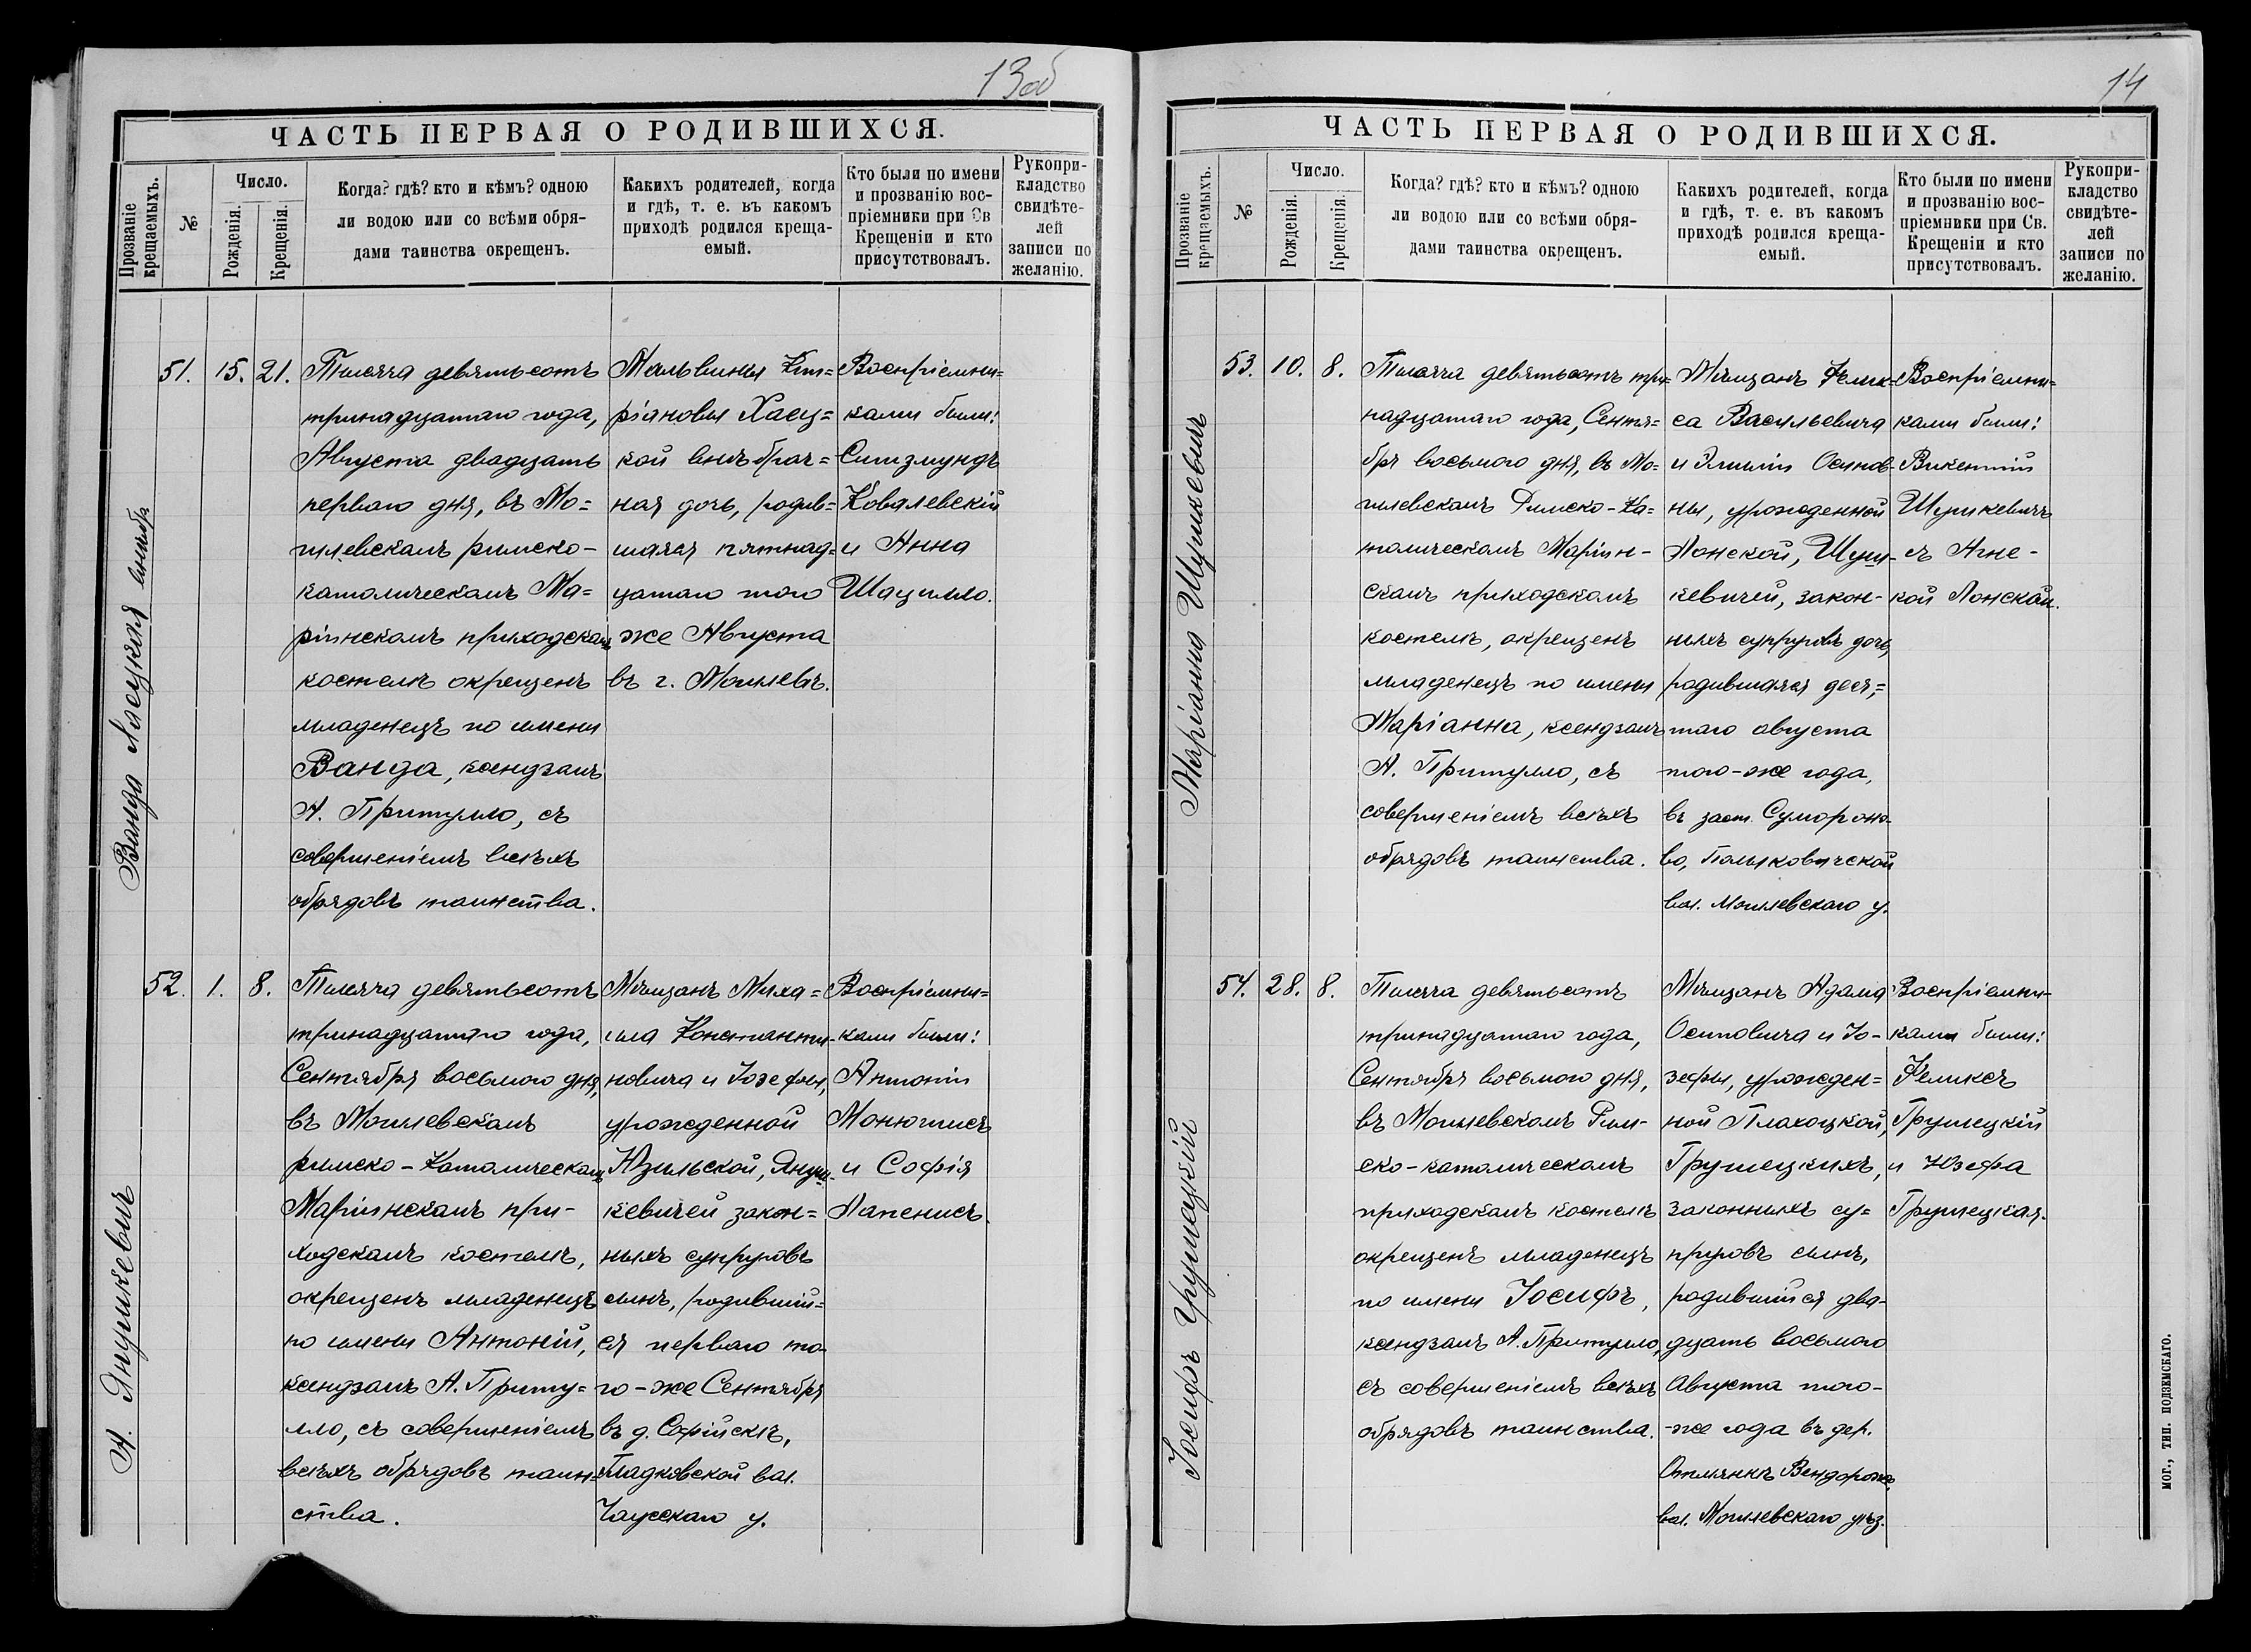 13об
ЧАСТЬ ПЕРВАЯ О РОДИВШИХСЯ.
Прозваніе крещаемыхъ.
№
Число.
Рожденія.
Крещенія.
Когда? гдѣ? кто и кѣмъ? одною
ли водою или со всѣми обря-
дами таинства окрещенъ.
Какихъ родителей, когда
и гдѣ, т. е. въ какомъ
приходѣ родился креща-
емый.
Кто были по имени
и прозванію вос-
пріемники при Св
Крещеніи и кто
присутствовалъ.
Рукопри-
кладство
свидѣте-
лей
записи по
желанію.
Ванда
51.
15.
21.
Тысяча девятьсотъ
тринадцатаго года,
Августа двадцать
перваго дня, въ Мо=
гилевскомъ римско-
католическомъ Ма=
ріинскомъ приходскомъ
костелѣ окрещенъ
младенецъ по имени
Ванда, ксендзомъ
А. Притулло, съ
совершеніемъ всѣхъ
обрядовъ таинства.
Мальвины Кип=
ріановны Хасц=
кой внѣбрач=
ная дочь, родив=
шаяся пятнад=
цатаго того
же Августа
въ г. Могилевѣ.
Воспріемни=
ками были:
Сигизмундъ
Ковалевскій
и Анна
Шацилло.
А. Янушкевичъ
52.
1.
8.
Тысяча девятьсотъ
тринадцатаго года,
Сентября восьмого дня,
въ Могилевскомъ
римско-Католическомъ
Маріинскомъ при-
ходскомъ костелѣ,
окрещенъ младенецъ
по имени Антоній,
ксендзомъ А. Приту=
лло, съ совершеніемъ
всѣхъ обрядовъ таин=
ства.
Мѣщанъ Миха=
ила Константи-
новича и Іозефы,
урожденной
Юзульской, Януш-
кевичей закон=
ныхъ супруговъ
сынъ, родившій=
ся перваго то-
го-же Сентября
въ д. Софійскѣ,
Гладковской вол.
Чаусскаго у.
Воспріемни=
ками были:
Антоній
Монюшисъ
и Софія
Лапенисъ.
14
ЧАСТЬ ПЕРВАЯ О РОДИВШИХСЯ.
Прозваніе крещаемыхъ.
№
Число.
Рожденія.
Крещенія.
Когда? гдѣ? кто и кѣмъ? одною
ли водою или со всѣми обря-
дами таинства окрещенъ.
Какихъ родителей, когда
и гдѣ, т. е. въ какомъ
приходѣ родился креща-
емый.
Кто были по имени
и прозванію вос-
пріемники при Св.
Крещеніи и кто
присутствовалъ.
Рукопри-
кладство
свидѣте-
лей
записи по
желанію.
Маріанна Шушкевичъ
53.
10.
8.
Тысяча девятьсотъ три-
надцатаго года, Сентя=
бря восьмого дня, въ Мо=
гилевскомъ Римско-Ка=
толическомъ Маріин-
скомъ приходскомъ
костелѣ, окрещенъ
младенецъ по имени
Маріанна, ксендзомъ
А. Притулло, съ
совершеніемъ всѣхъ
обрядовъ таинства.
Мѣщанъ Фелик-
са Васильевича
и Эмиліи Осипов-
ны, урожденной
Лонской, Шуш-
кевичей, закон-
ныхъ супруговъ дочь,
родившаяся деся=
таго августа
того-же года,
въ заст. Сумороко-
во, Полыковичской
вол. Могилевскаго у.
Воспріемни=
ками были:
Викентій
Шушкевичъ
съ Агне-
кой Лонской.
Іосифъ Грушецкій
54.
28.
8.
Тысяча девятьсотъ
тринадцатаго года,
Сентября восьмого дня,
въ Могилевскомъ Рим-
ско-католическомъ
приходскомъ костелѣ
окрещенъ младенецъ
по имени Іосифъ,
ксендзомъ А. Притулло,
съ совершеніемъ всѣхъ
обрядовъ таинства.
Мѣщанъ Адама
Осиповича и Іо-
зефы, урожден=
ной Плахоцкой,
Грушецкихъ,
законныхъ су=
пруговъ сынъ,
родившійся два-
дцать восьмого
Августа того-
-же года въ дер.
Вендорожс.
вол. Могилевскаго уѣз.
Воспріемни-
ками были:
Феликсъ
Грушецкій
и Юзефа
Грушецкая.
МОГ., ТИП. ПОДЗЕМСКАГО.